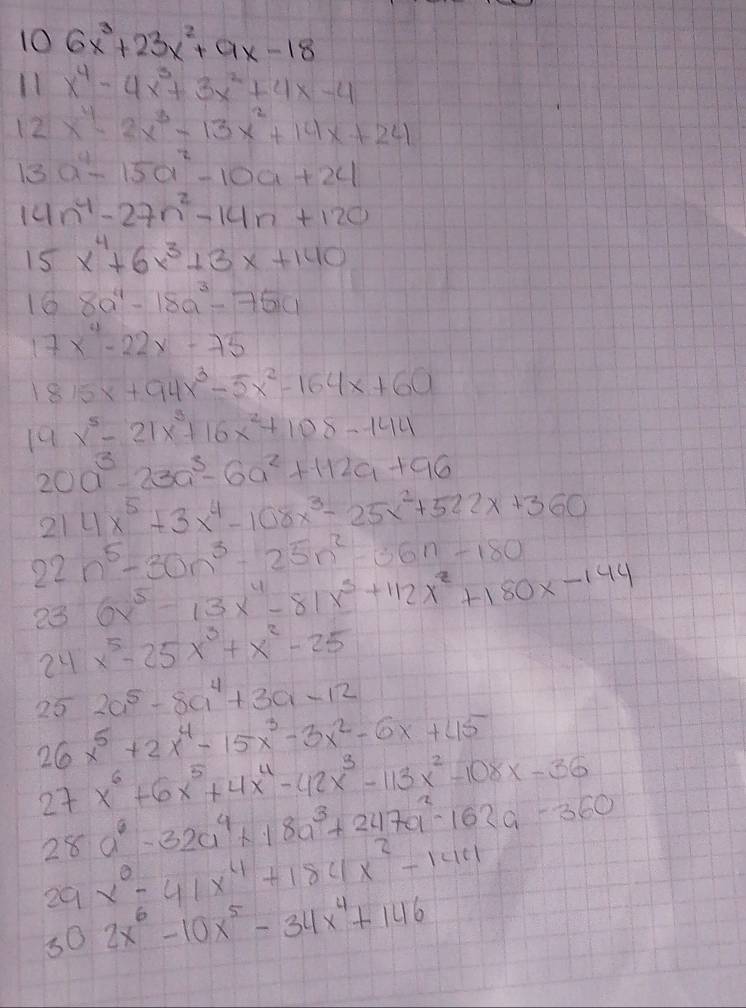 10 6x³+23x²+9x-18
11 x⁴-4x³+3x²+4x-4
12 x⁴-2x³-13x²+14x+24
13 a⁴-15a²-10a+24
14 n⁴-27n²-14n+120
15 x⁴+6x³+3x+140
16 8a⁴-18a³-75a
17 x⁴-22x-75
18 15x+94x³-5x²-164x+60
19 x⁵-21x³+16x²+108-144
20 a⁵-23a³-6a²+112a+96
21 4x⁵+3x⁴-108x³-25x²+522x+360
22 n⁵-30n³-25n²-36n-180
23 6x⁵-13x⁴-81x³+112x²+180x-144
24 x⁵-25x³+x²-25
25 2a⁵-8a⁴+3a-12
26 x⁵+2x⁴-15x³-3x²-6x+45
27 x⁶+6x⁵+4x⁴-42x³-113x²-108x-36
28 a⁶-32a⁴+18a³+247a²-162a-360
29 x⁶-41x⁴+184x²-144
30 2x⁶-10x⁵-34x⁴+146